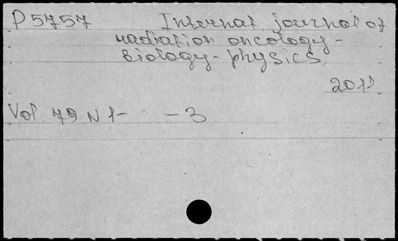 P5757 Internat journal of
radiation oncology -
biology - physics
2011
Vol. 79 N 1- -3